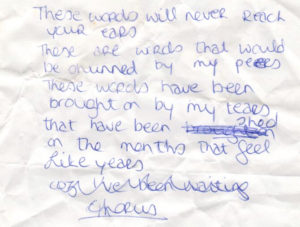 These words will never reach
your ears
These are words that would
be shunned by my peers
These words have been
brought on by my tears
that have been shed
on the months that feel
Like years
coz I've been waiting
Chorus